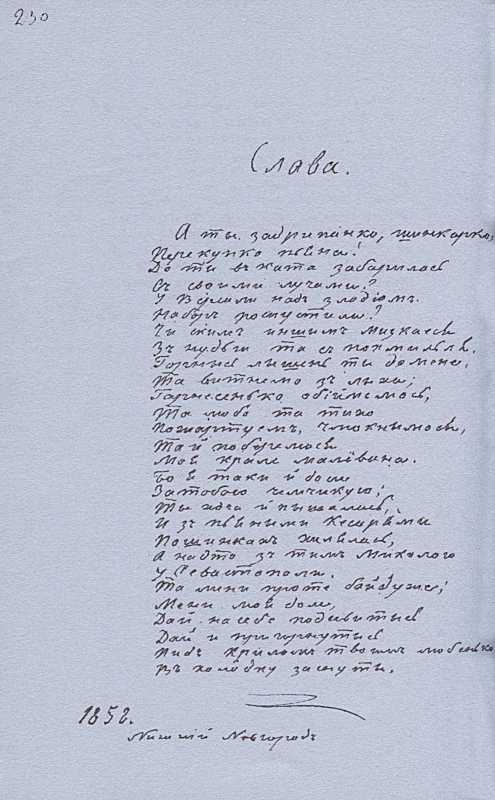 230
Слава.
А ты задрипанко, шинкарко,
Перекупко пьяна!
Де ты въ ката забарилась
Съ своими лучами?
У Версали надъ злодіомъ
Наборъ роспустила?
Чи скимъ иншимъ мизкаєсся
Зъ нудьги та съ похмилья.
Горнись лишень ты до мене,
Та витнемо зъ лиха;
Гарнесенько обіймемось,
Та любо та тихо
Пожартуем, чмокнимось,
Та й поберемось
Моя крале малёвана.
Бо я таки й доси
За тобою чимчикую;
Ты хоча й пышалась,
И зъ пьяными Кесарями
По шинкахъ хилялась,
А надто зъ тимъ Миколою
У Севастополи.
Та мени проте байдуже;
Мени, моя доле,
Дай на себе подивитись
Дай и пригорнутись
Пидъ криломъ твоимъ любенько
Въ холодку заснути.
1858.
Нижній Новгородъ